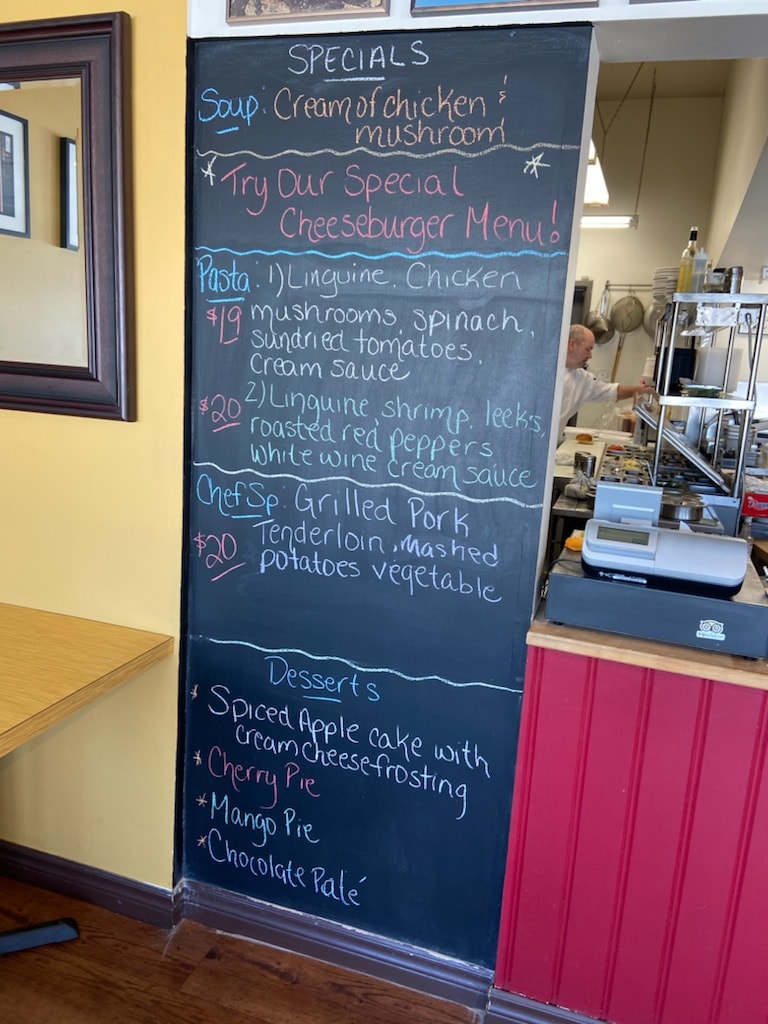 SPECIALS
Soup: Cream of chicken &
mushroom
Try Our Special
Cheeseburger Menu!
Pasta: 1) Linguine, Chicken
$19 mushrooms, spinach,
sundried tomatoes,
cream sauce
$20 2) Linguine, shrimp, leeks,
roasted red peppers
white wine cream sauce
Chef Sp: Grilled Pork
$20 Tenderloin, mashed
potatoes vegetable
Desserts
* Spiced Apple cake with
cream cheese frosting
* Cherry Pie
* Mango Pie
* Chocolate Paté